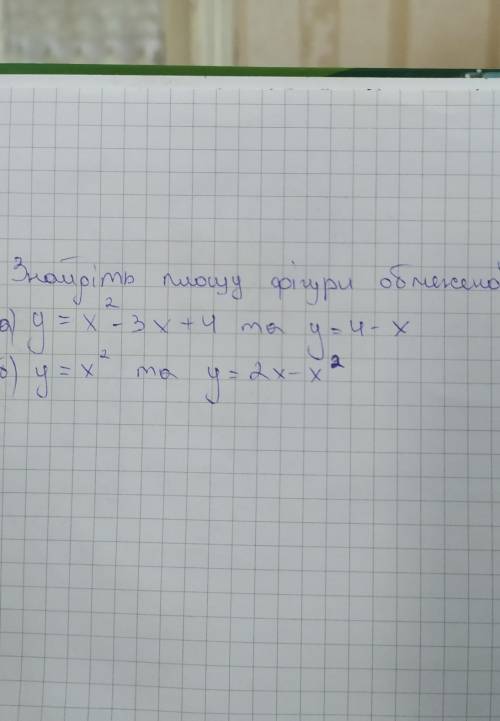 Знайдіть площу фігури обмежено
а) y = x² - 3x + 4 та y = 4 - x
б) y = x² та y = 2x - x²